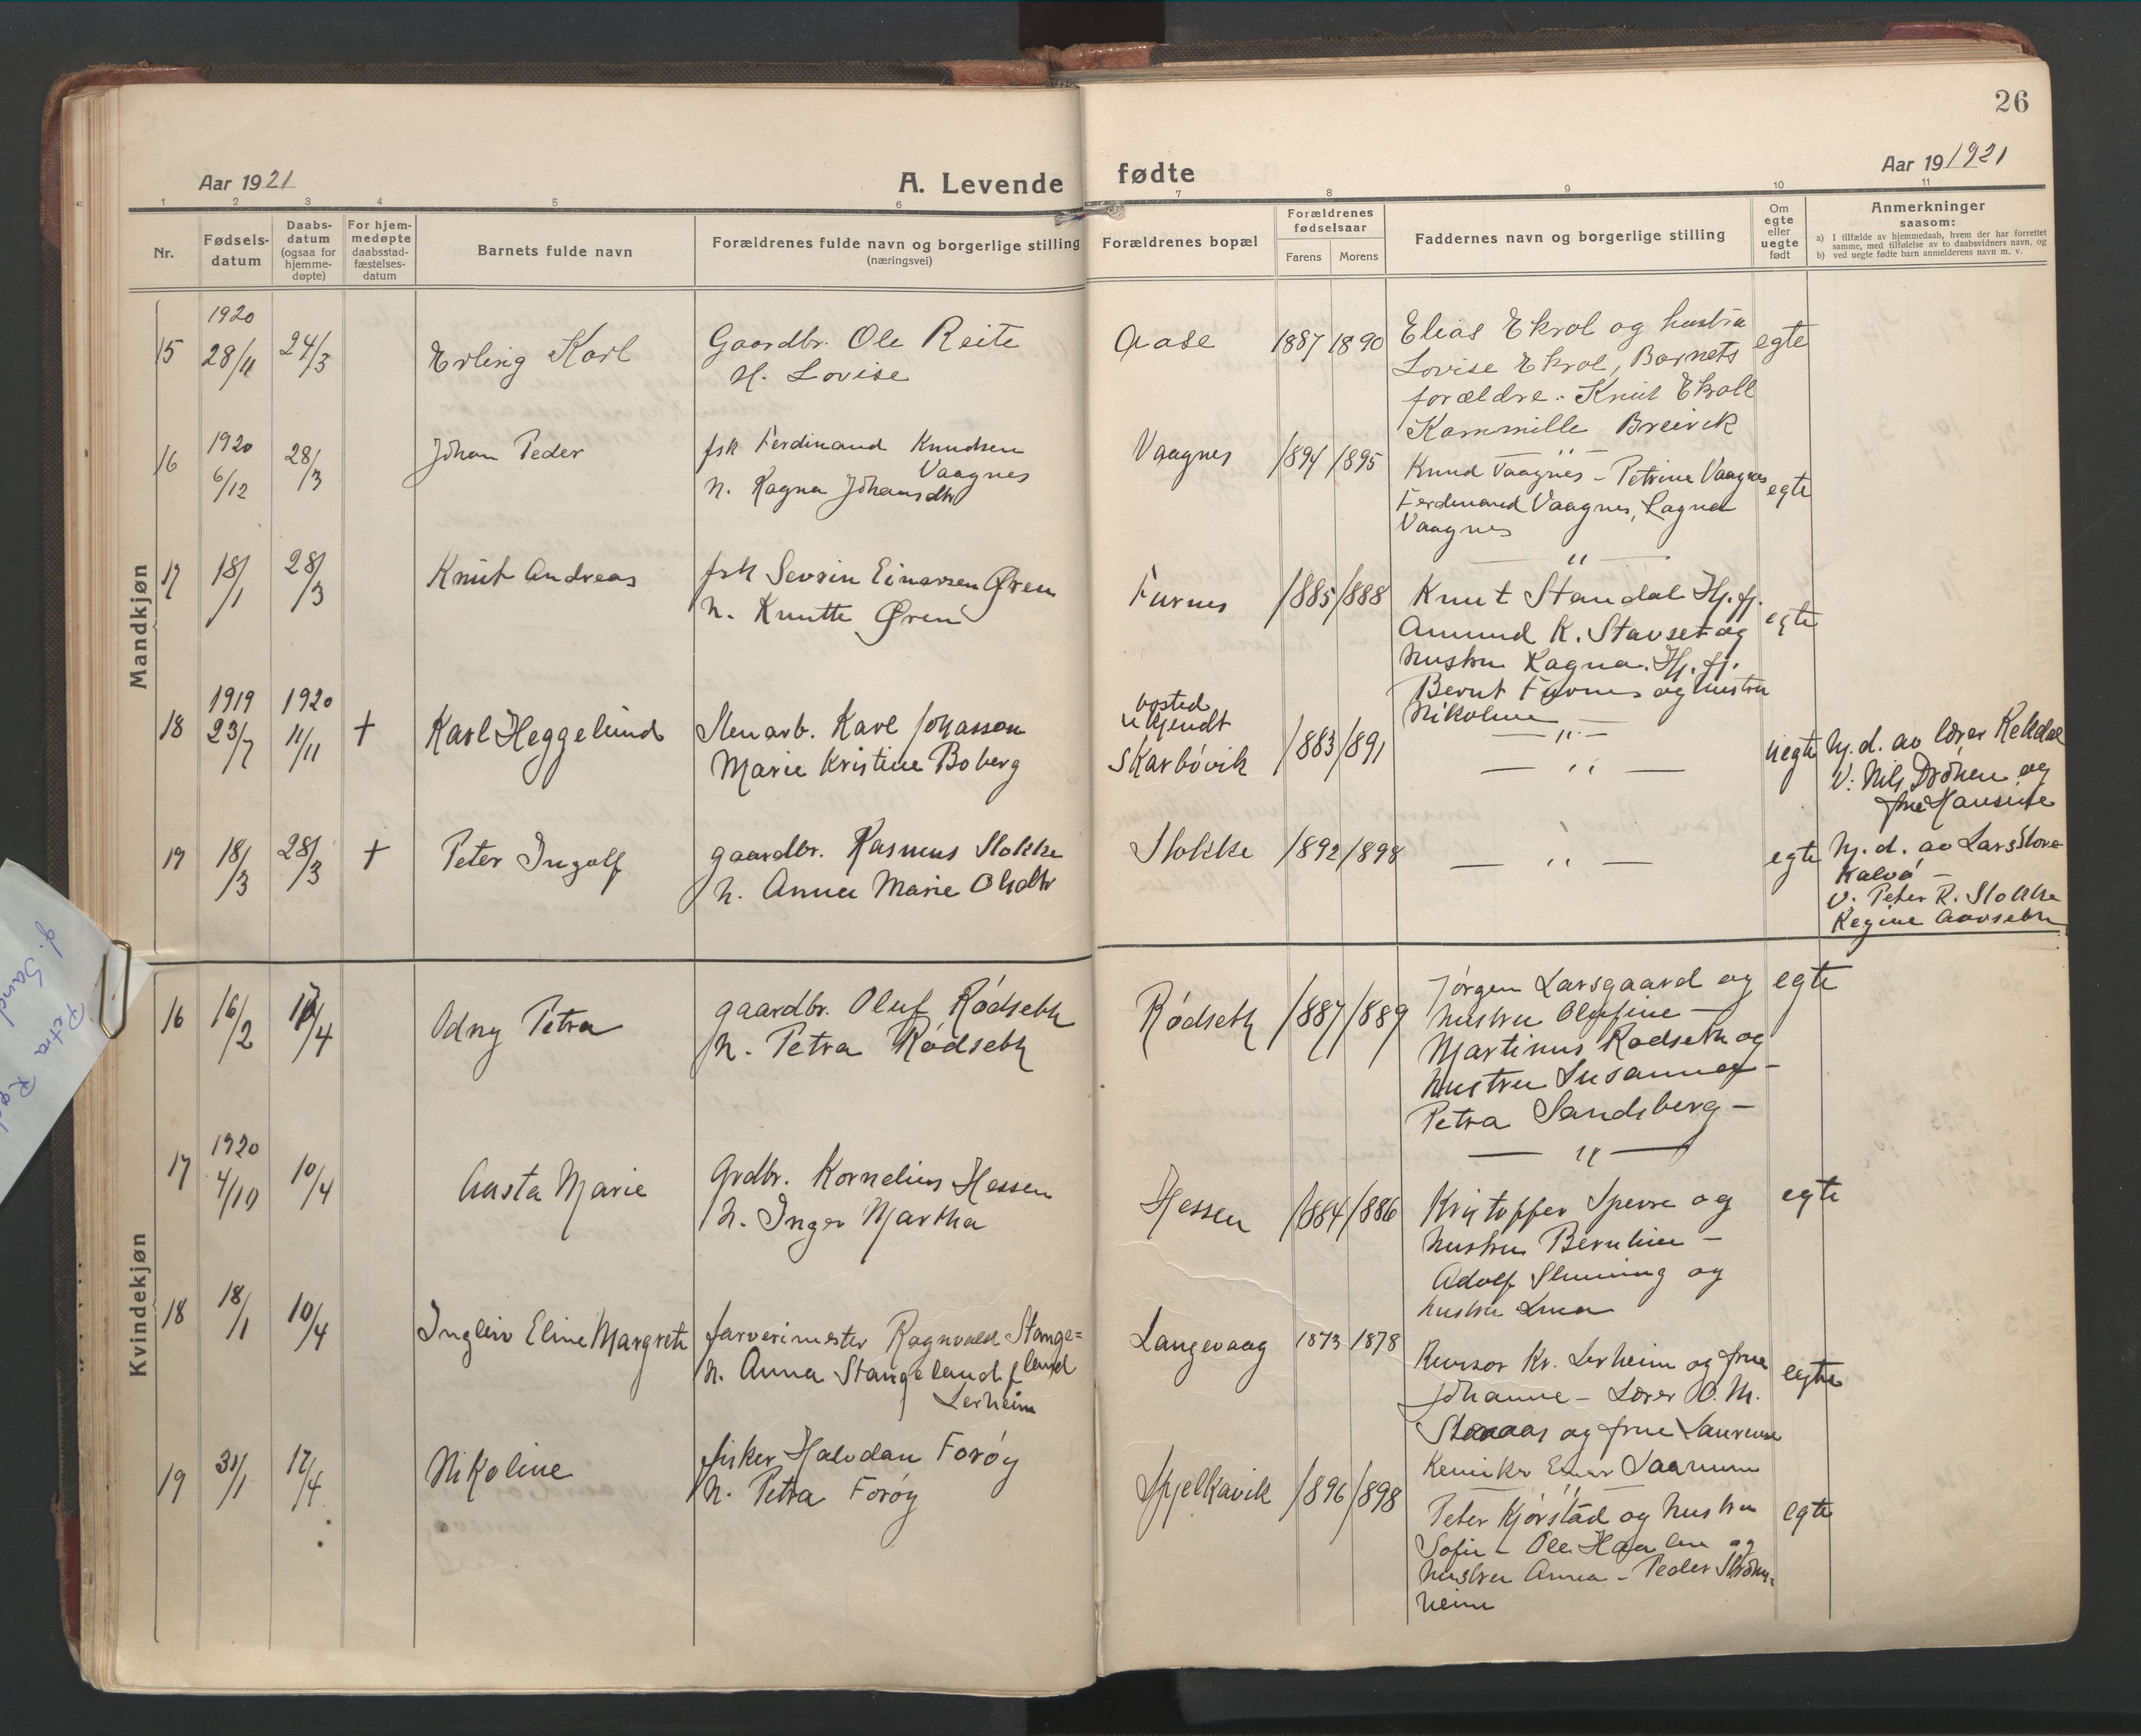 26
Aar 1921
A. Levende fødte
Aar 19 1921
1 2 3 4 5 6 7 8 9 10 11
Nr.
Fødsels-
datum
Daabs-
datum
(ogsaa for
hjemme-
døpte)
For hjem-
medøpte
daabsstad-
fæstelses-
datum
Barnets fulde navn
Forældrenes fulde navn og borgerlige stilling
(næringsvei)
Forældrenes bopæl
Forældrenes
fødselsaar
Farens Morens
Faddernes navn og borgerlige stilling
Om
egte
eller
uegte
født
Anmerkninger
saasom:
a) I tilfælde av hjemmedaab, hvem der har forrettet
samme, med tilføielse av to daabsvidners navn, og
b) ved uegte fødte barn anmelderens navn m. v.
Mandkjøn
15
1920
28/11
24/3
Erling Karl
Gaardbr. Ole Reite
H. Lovise
Aase
1887 1890
Elias Ekrol og hustru
Lovise Ekrol, Barnets
forældre. Knut Ekroll
Kammille Breivik
egte
16
1920
6/12
28/3
Johan Peder
fsk Ferdinand Knudsen
Vaagnes
h. Ragna Johansdtr
Vaagnes
1894 1895
Knud Vaagnes - Petrine Vaagnes
Ferdinand Vaagnes, Ragna
Vaagnes
egte
17
18/1
28/3
Knut Andreas
fsk Sevrin Einarsen Øren
h. Knutte Øren
Furnes
1885 1888
Knut Standal Hj. fj.
Amund K. Stavset og
hustru Ragna. Hj. fj.
Bernt Furnes og hustru
Nikoline
egte
18
1919
23/7
1920
11/11
+
Karl Heggelund
Stenarb. Karl Johasson
Marie Kristine Boberg
bosted
ukjendt
Skarbøvik
1883 1891
— " —
uegte
hj. d. av lærer Rekdal
V: Nils Drønen og
frue Hansine
19
18/3
28/3
+
Peter Ingolf
gaardbr. Rasmus Stokke
h. Anna Marie Olsdtr
Stokke
1892 1898
— " —
egte
hj. d. av Lars Slore
Kalvø -
V. Peter R. Stokke
Regine Aarseth
Kvindekjøn
16
16/2
10/4
Odny Petra
gaardbr. Oluf Rødseth
h. Petra Rødseth
Rødseth
1887 1889
Jørgen Larsgaard og
hustru Olufine -
Martinus Rødseth og
hustru Susanna -
Petra Sandsberg -
— " —
egte
17
1920
4/10
10/4
Aasta Marie
Grdbr. Kornelius Hessen
h. Inger Martha
Hessen
1884 1886
Kristoffer Sperre og
hustru Bernline -
Adolf Slinning og
hustru Lina
egte
18
18/1
10/4
Ingleiv Eline Margrete
farverimester Ragnvald Stange=
land
h. Anna Stangeland f
Lerheim
Langevaag
1873 1878
Revisor Kr. Lerheim og frue
Johanne - Lærer O. M.
og frue Laurense
Kemiker Einar
egte
19
31/1
17/4
Nikoline
fisker Halvdan Forøy
h. Petra Forøy
Spjelkavik
1896 1898
Peter Kjørstad og hustru
Sofie - Ole og
hustru Anna - Peder Strøm-
heim
egte
Petra Rød
g. Sand